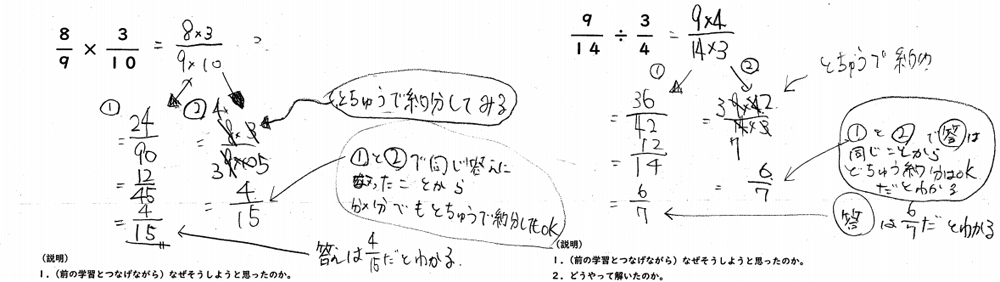 8/9 × 3/10 = 8×3/9×10
① = 24/90
= 12/45
= 4/15
② = 8×3/9×10
4
3
5
= 4/15
とちゅうで約分してみる
①と②で同じ答えに
なったことから
分×分でもとちゅうで約分してもOK
答えは4/15だとわかる.
(説明)
1.(前の学習とつなげながら)なぜそうしようと思ったのか。
9/14 ÷ 3/4 = 9×4/14×3
① = 36/42
= 12/14
= 6/7
② = 9×4/14×3
3
2
7
= 6/7
とちゅうで約分
①と②で答は
同じことから
とちゅう約分はOK
だとわかる
答は6/7だとわかる
(説明)
1.(前の学習とつなげながら)なぜそうしようと思ったのか。
2.どうやって解いたのか。